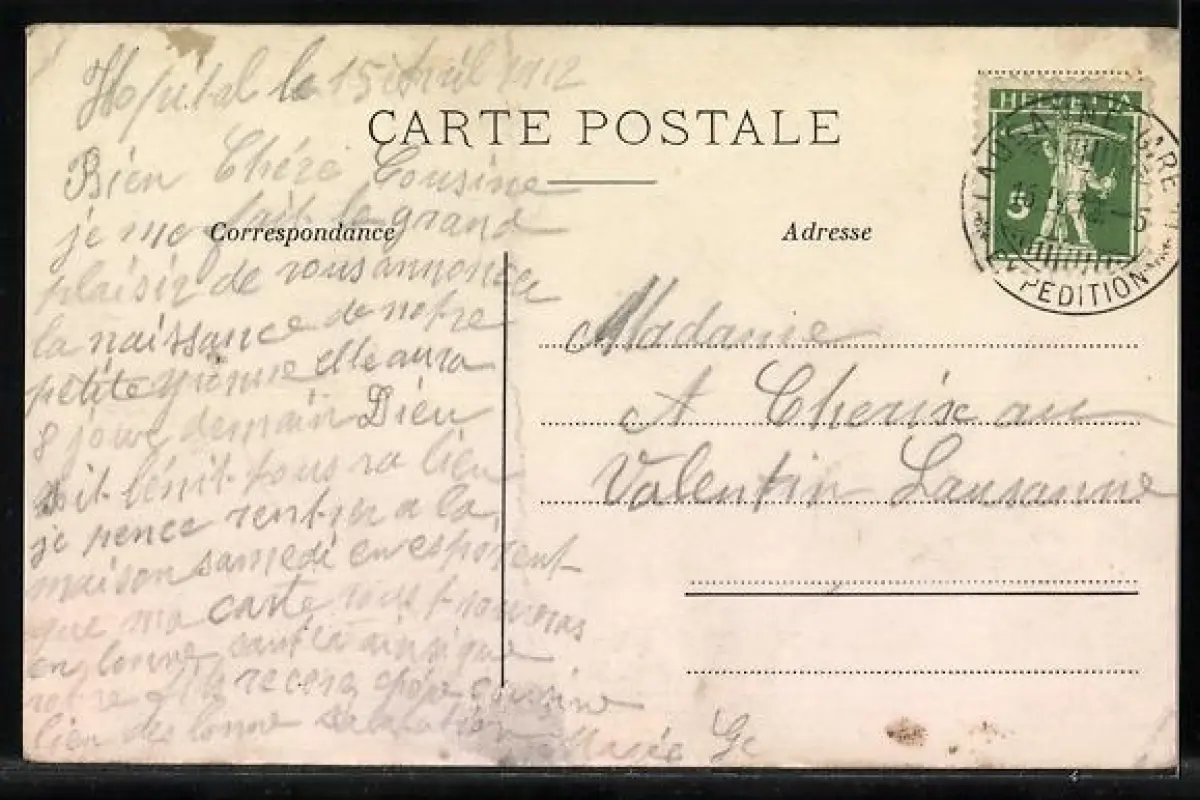 Hopital le 15 Avril 1912
CARTE POSTALE
Bien Chére Cousine
je me fait le grand
Correspondance
plaisir de vous annoncer
la naissance de notre
petite elle aura
8 jour demain Dieu
soit bénit tous va bien
je pence rentrer a la
maison samedi en esperent
que ma carte vous trouveras
en bonne santéé ainsi que
votre fils recevez chére cousine
bien des bonne salutation
Marie
Adresse
Madame
A Cherix au
Valentin Lausanne
HELVETIA
5
LAUSANNE GARE
EXPEDITION